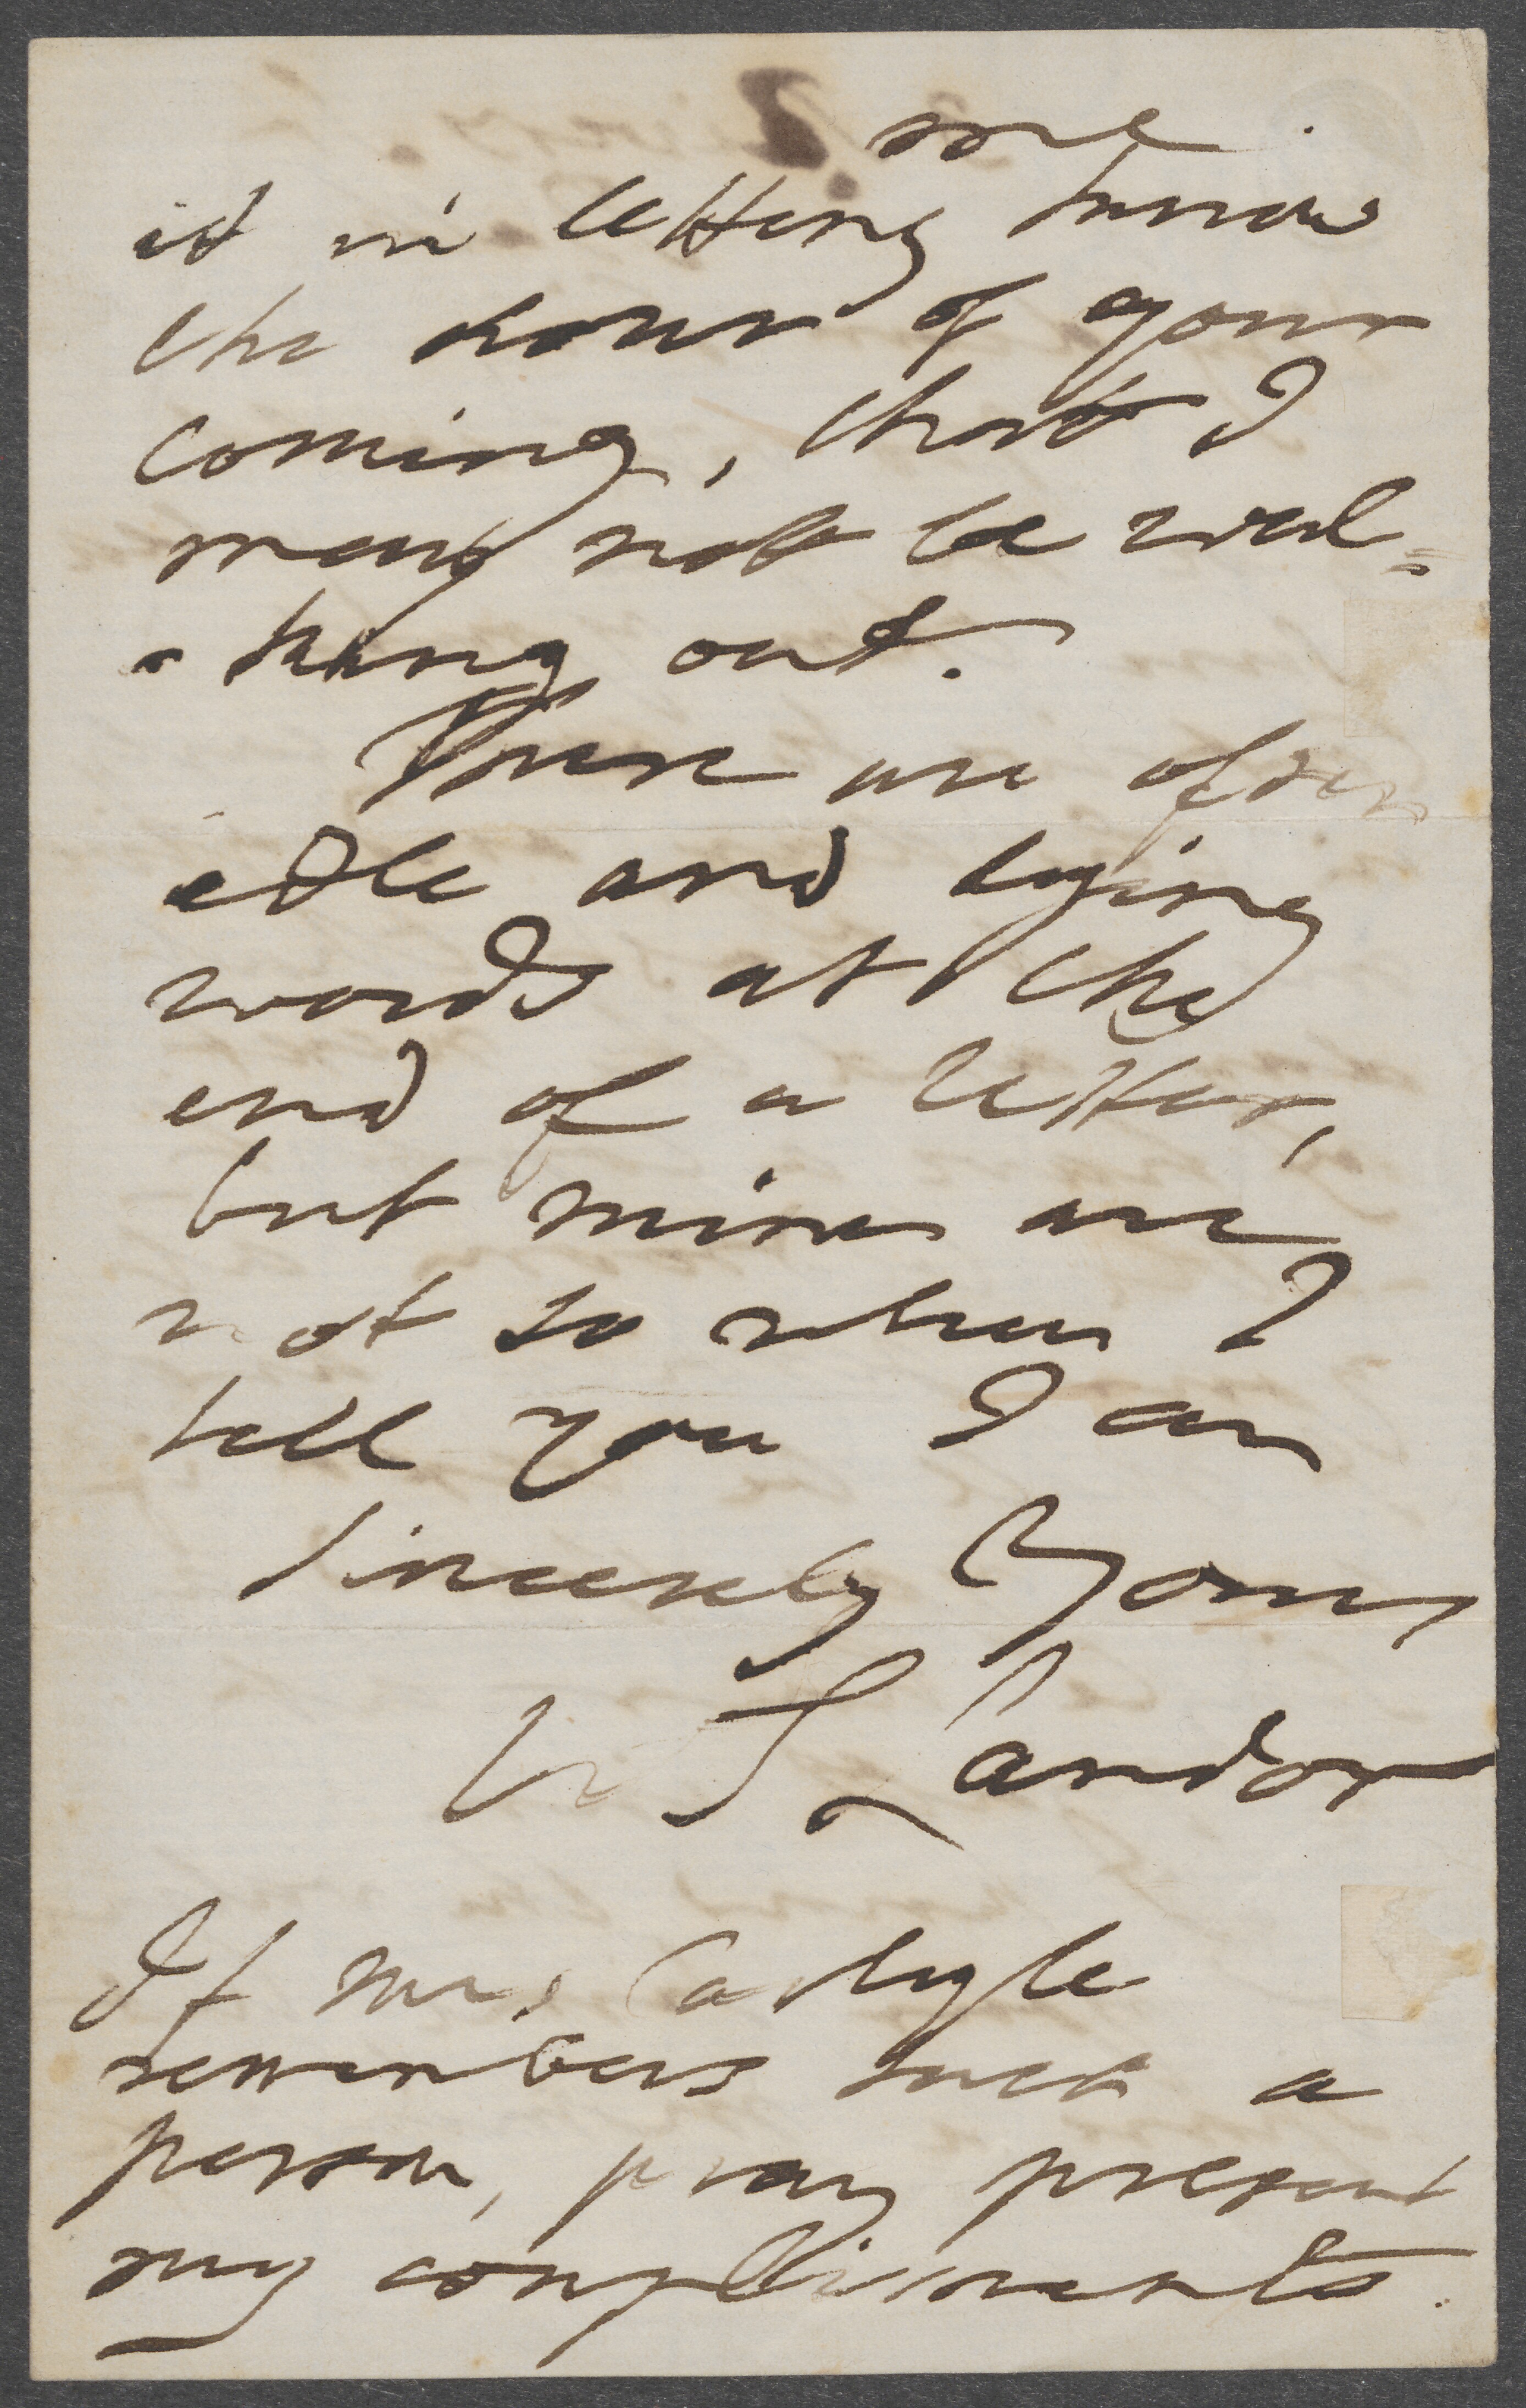 me
it in letting know
the hour of your
coming, that I
may not be wal=
-king out.
There are often
idle and lying
words at the
end of a letter,
but mine are
not so when I
tell you I am
sincerely Yours
W S Landor
If Mrs Carlyle
remembers such a
person, pray present
my compliments.